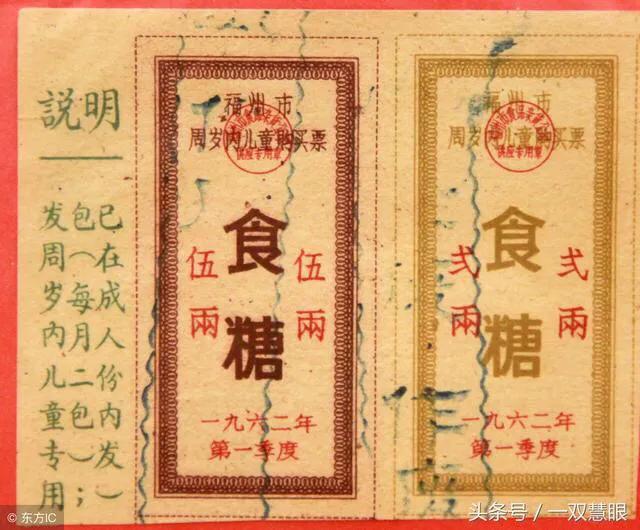 説明
已在成人份内发）
包（每月二包）；
发周岁内儿童专用
福州市
周岁内儿童购买票
供应专用章
食糖
伍兩
伍兩
一九六二年
第一季度
福州市
周岁内儿童购买票
供应专用章
食糖
弍兩
弍兩
一九六二年
第一季度
© 东方IC
头条号 / 一双慧眼